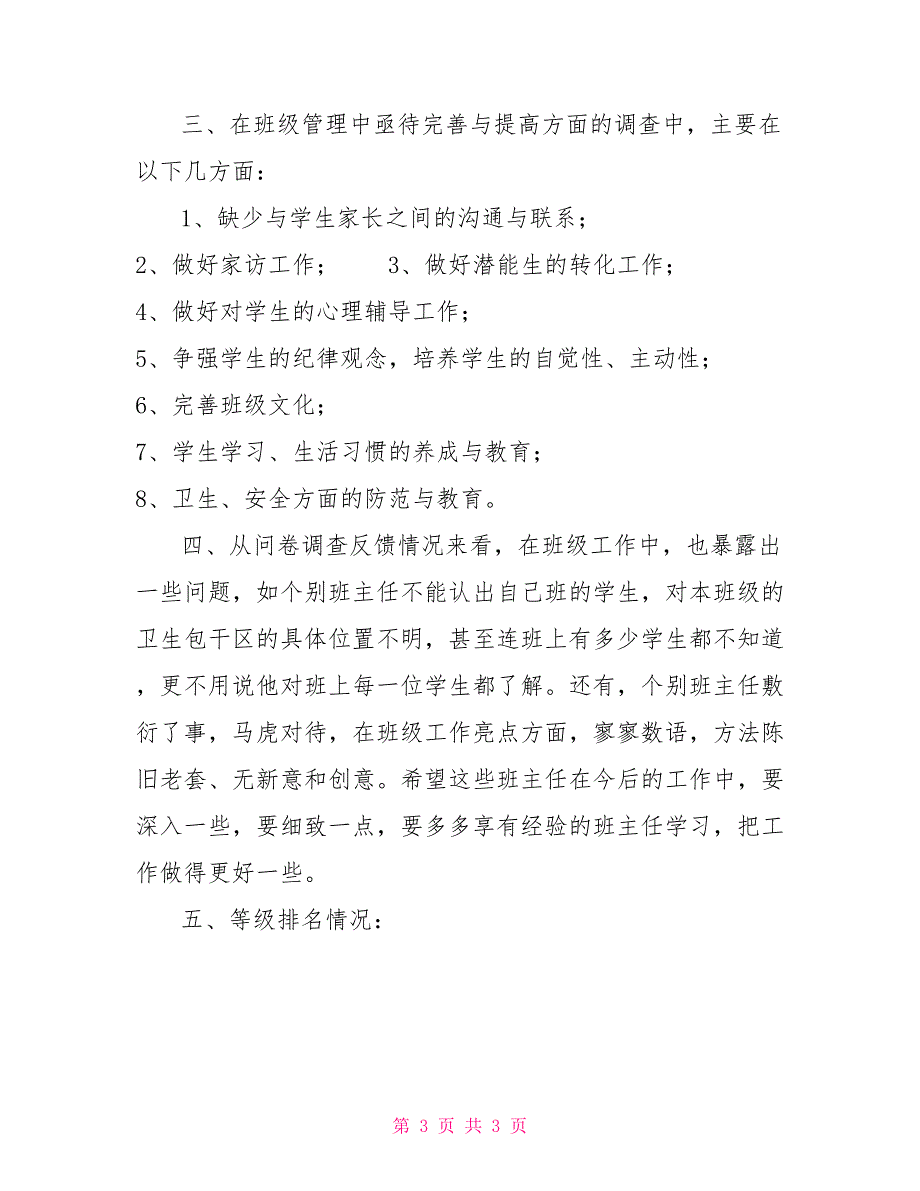 三、在班级管理中亟待完善与提高方面的调查中，主要在
以下几方面：
1、缺少与学生家长之间的沟通与联系；
2、做好家访工作； 3、做好潜能生的转化工作；
4、做好对学生的心理辅导工作；
5、争强学生的纪律观念，培养学生的自觉性、主动性；
6、完善班级文化；
7、学生学习、生活习惯的养成与教育；
8、卫生、安全方面的防范与教育。
四、从问卷调查反馈情况来看，在班级工作中，也暴露出
一些问题，如个别班主任不能认出自己班的学生，对本班级的
卫生包干区的具体位置不明，甚至连班上有多少学生都不知道
，更不用说他对班上每一位学生都了解。还有，个别班主任敷
衍了事，马虎对待，在班级工作亮点方面，寥寥数语，方法陈
旧老套、无新意和创意。希望这些班主任在今后的工作中，要
深入一些，要细致一点，要多多享有经验的班主任学习，把工
作做得更好一些。
五、等级排名情况：
第 3 页 共 3 页